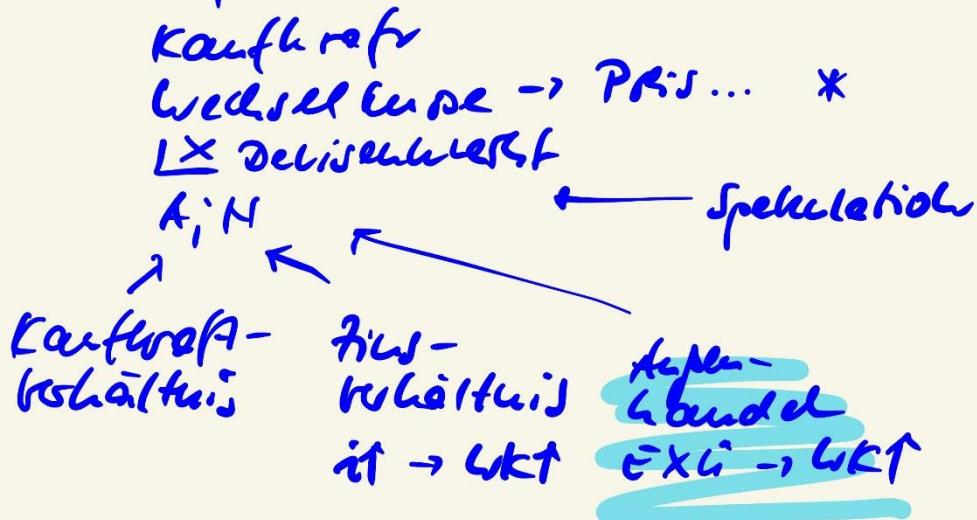 Kaufkraft
Wechselkurse → Preis... *
Devisenmarkt
A; N ← Spekulation
Kaufkraft-
verhältnis
Zins-
verhältnis
i↑ → WK↑
Außen-
handel
EXÜ → WK↑